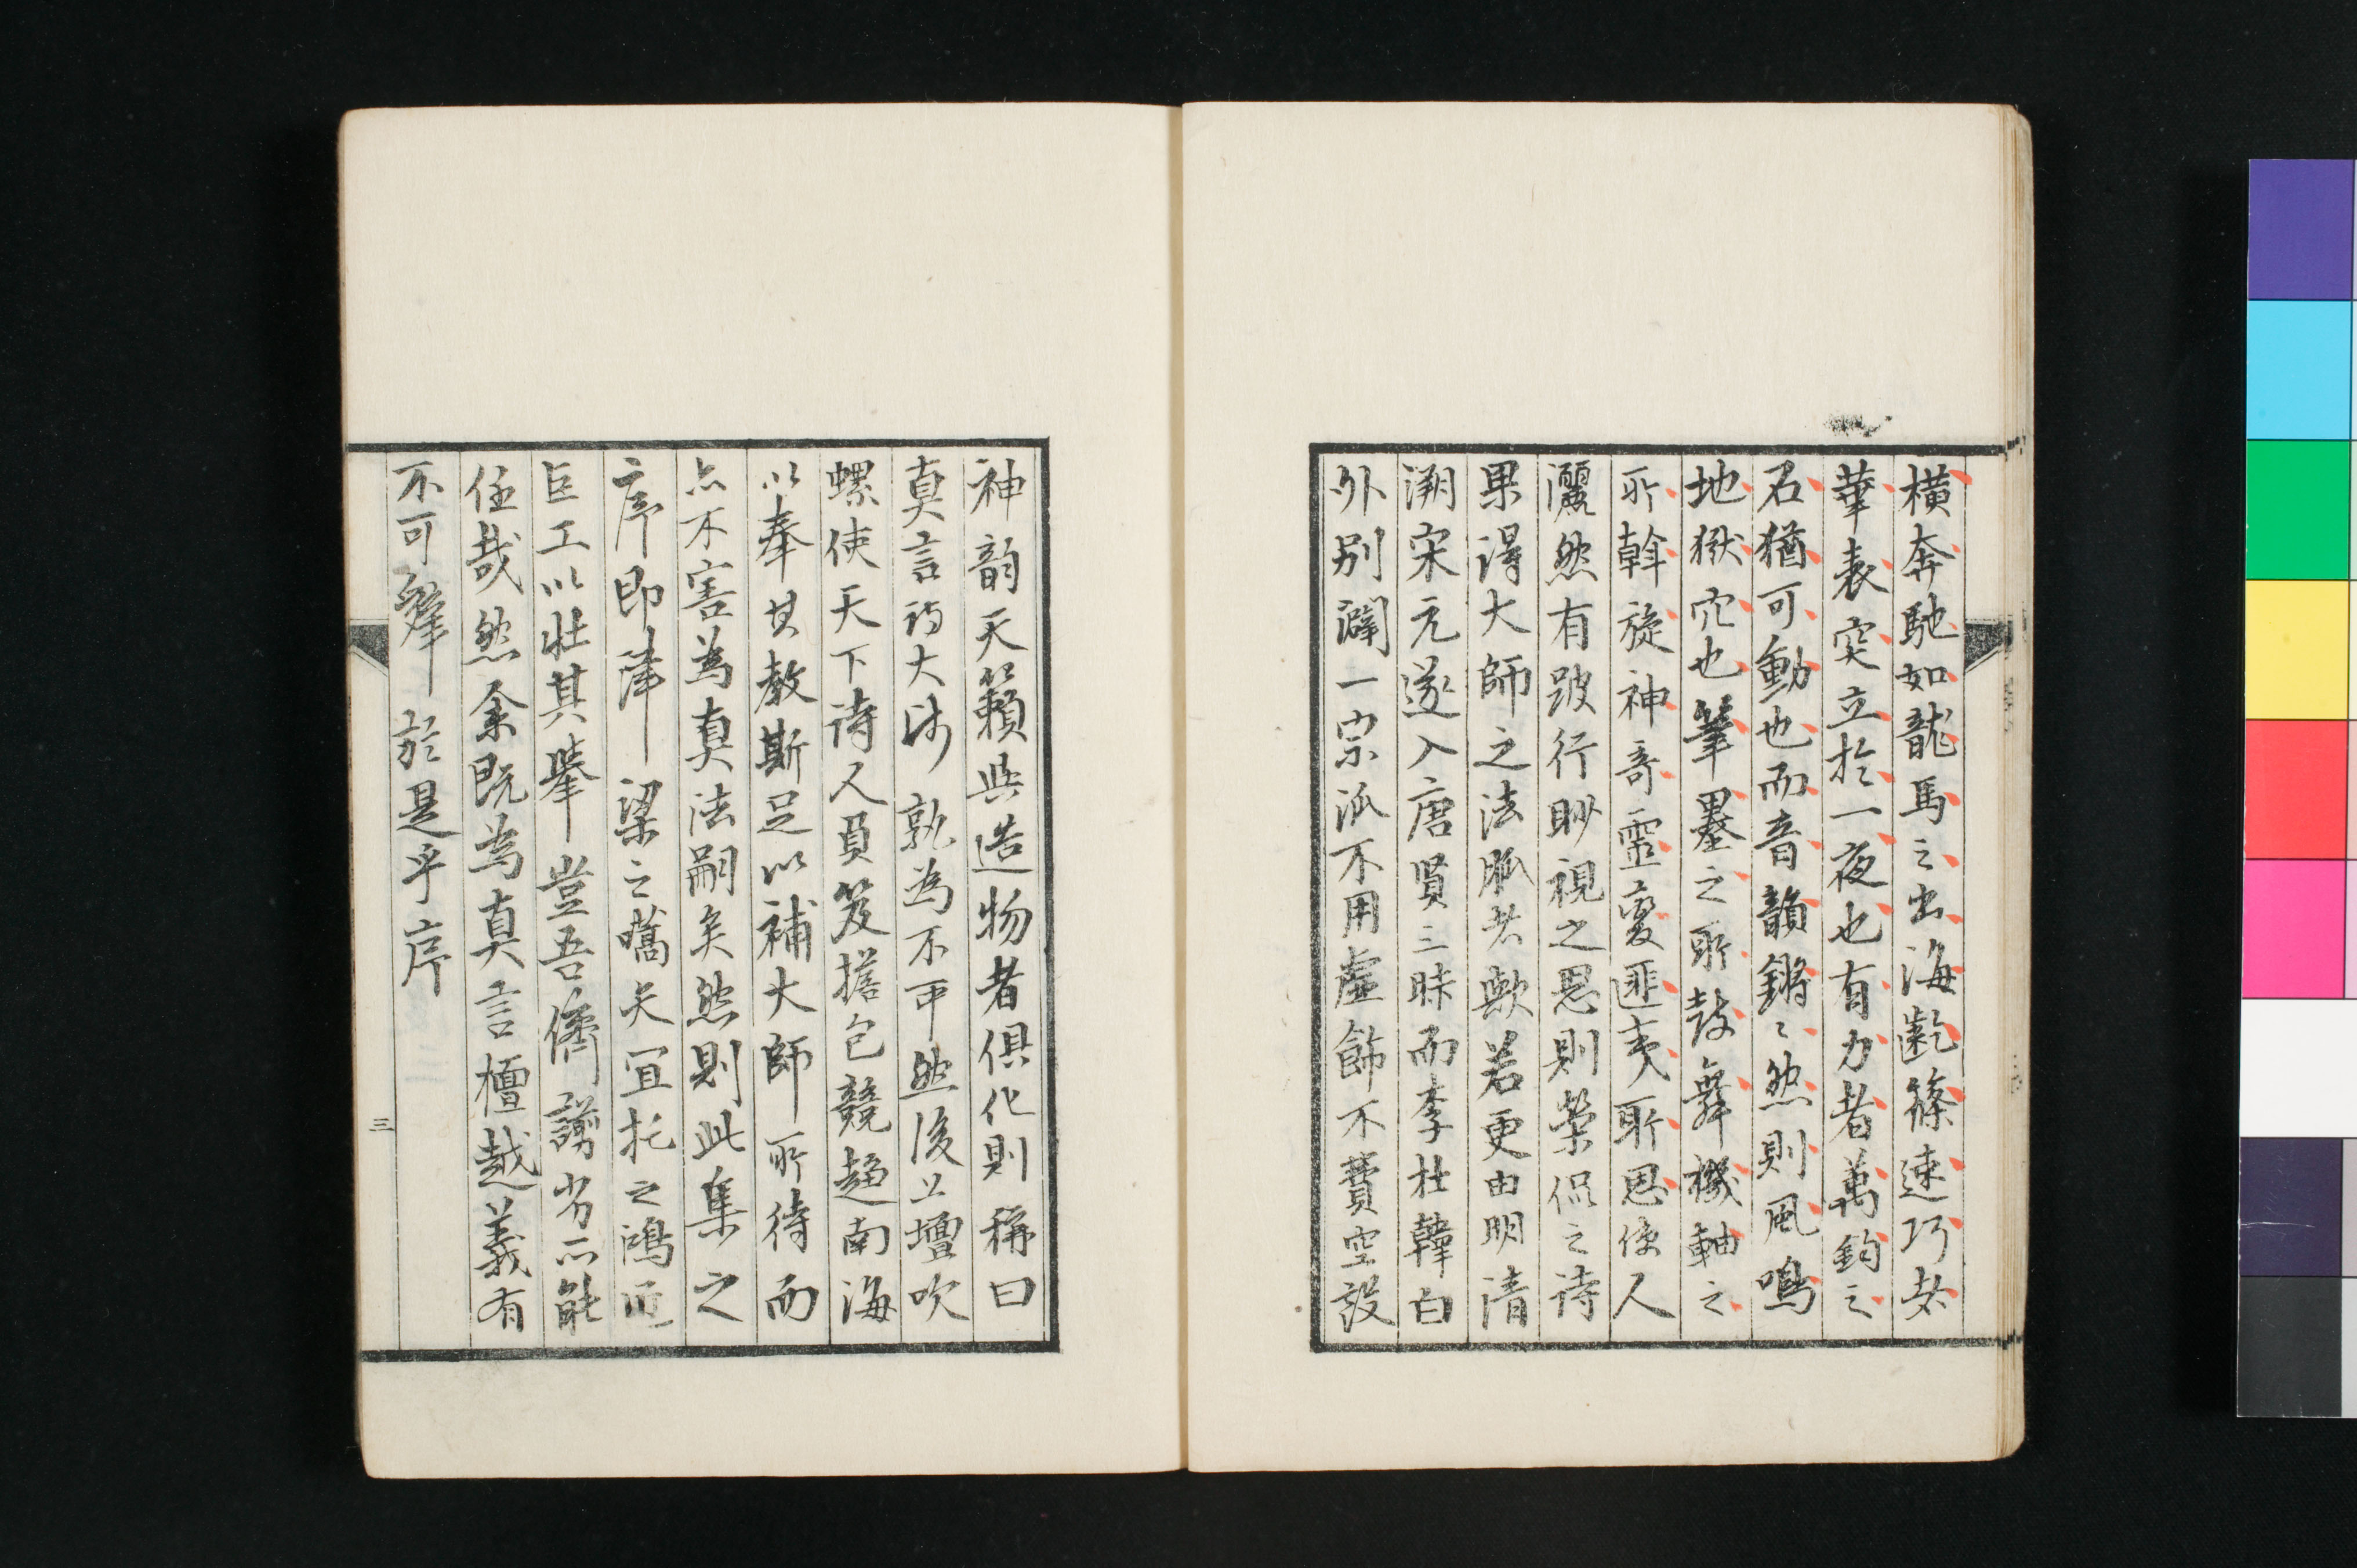 橫奔馳如龍馬之出海遬篠速巧於
華表突立於一夜也有力者萬鈞之
石猶可動也而音韻鏘〻然則風鳴
地獄穴也筆墨之所鼓舞機軸之
所斡旋神奇靈變匪夷所思使人
灑然有跛行眇視之思則榮侃之詩
果得大師之法脈者歟若更由明清
溯宋元遂入唐賢三昧而李杜韓白
外別闢一宗派不用虛飾不費空設
神韵天籟與造物者俱化則稱曰
真言詩大師孰為不可然後上壇吹
螺使天下詩人負笈擔包競趨南海
以奉其教斯足以補大師所待而
亦不害為真法嗣矣然則此集之
序即津梁之嚆矢宜托之鴻
巨工以壯其舉豈吾儕謭劣所能
任哉然余既為真言檀越義有
不可辭於是乎序
三